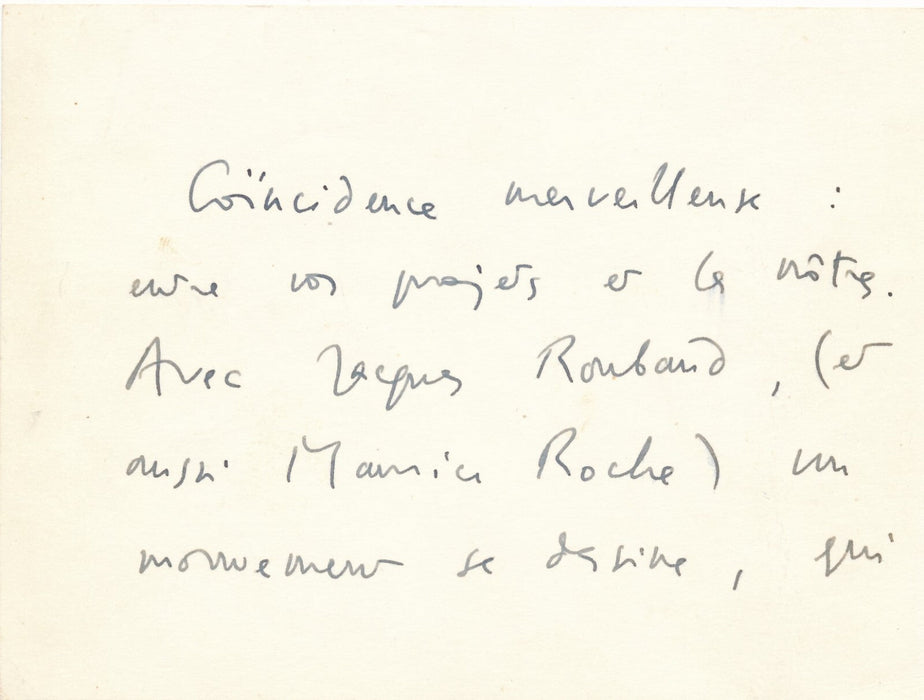 Coïncidence merveilleuse :
entre vos projets et les nôtres.
Avec Jacques Roubaud, (et
aussi Maurice Roche) un
mouvement se dessine, qui